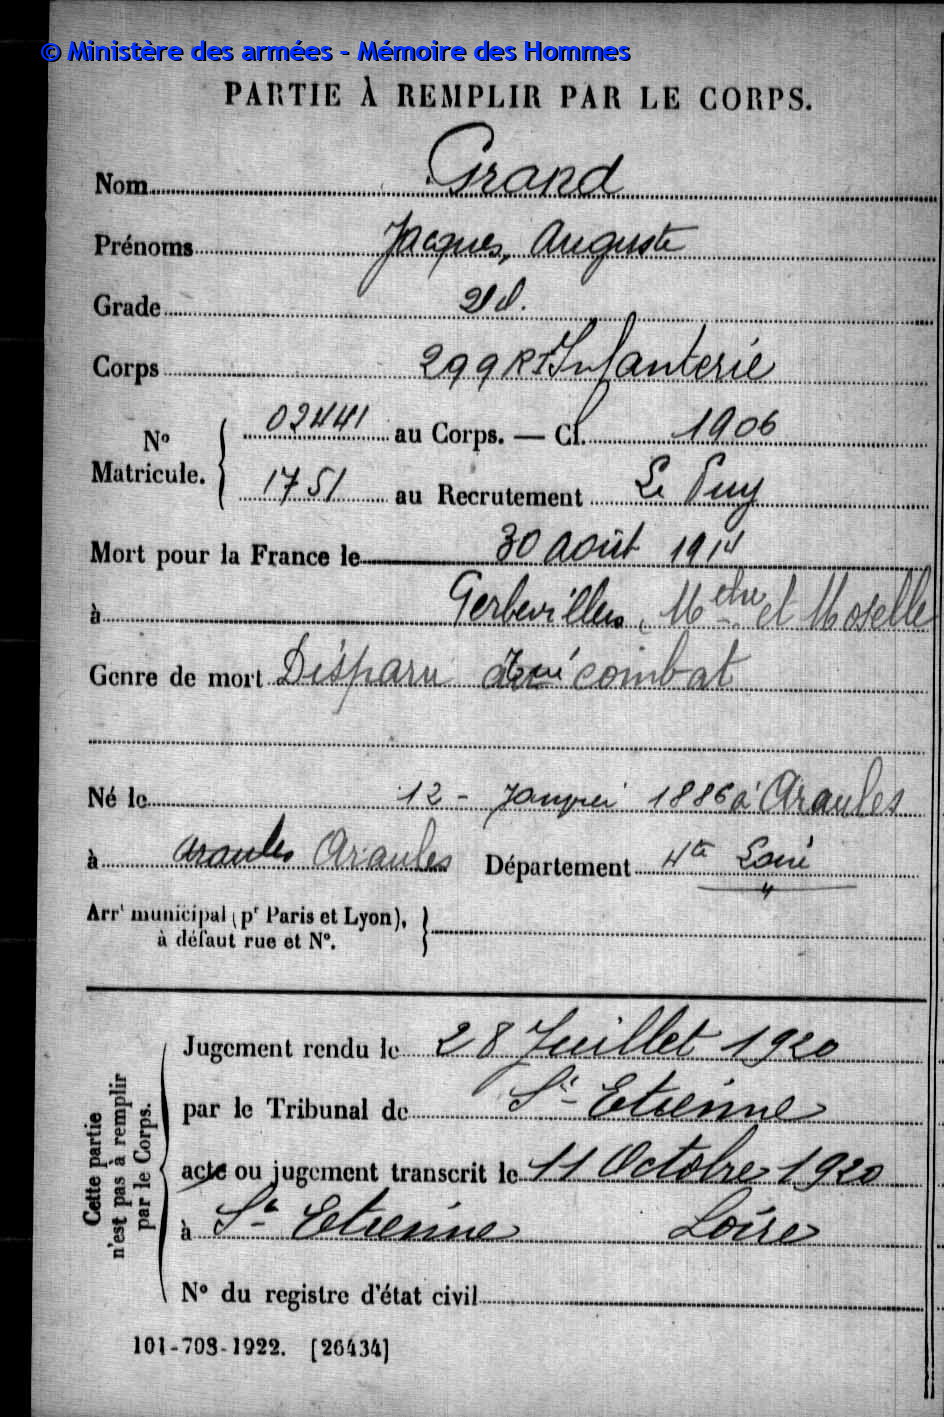 © Ministère des armées - Mémoire des Hommes
PARTIE À REMPLIR PAR LE CORPS.
Nom Grand
Prénoms Jacques, Auguste
Grade
Corps 299 RI Infanterie
N° Matricule. { 02441 au Corps. — Cl. 1906
1751 au Recrutement Le Puy
Mort pour la France le 30 août 1914
à Gerbevillers, Mthe et Moselle
Genre de mort Disparu Tué combat
Né le 12 - Janvier 1886 à Araules
à Araules Araules Département Hte Loire
Arrt municipal (pr Paris et Lyon), à défaut rue et N°. }
Cette partie n'est pas à remplir par le Corps.
Jugement rendu le 28 Juillet 1920
par le Tribunal de St-Etienne
acte ou jugement transcrit le 11 Octobre 1920
à St-Etienne Loire
N° du registre d'état civil
101-708-1922. [26434]